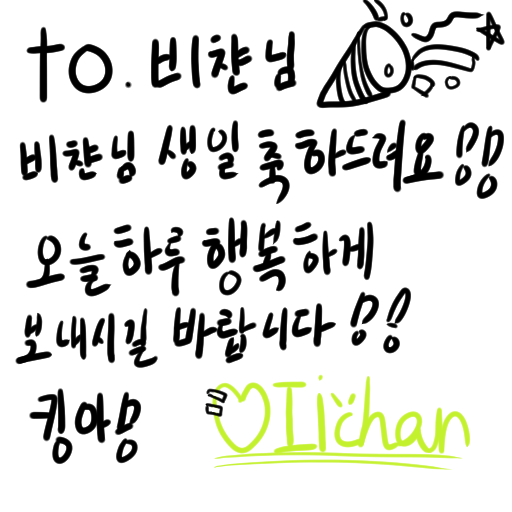 to. 비챤님
비챤님 생일 축하드려요!!
오늘하루 행복하게
보내시길 바랍니다!!
킹아!
♡Iichan